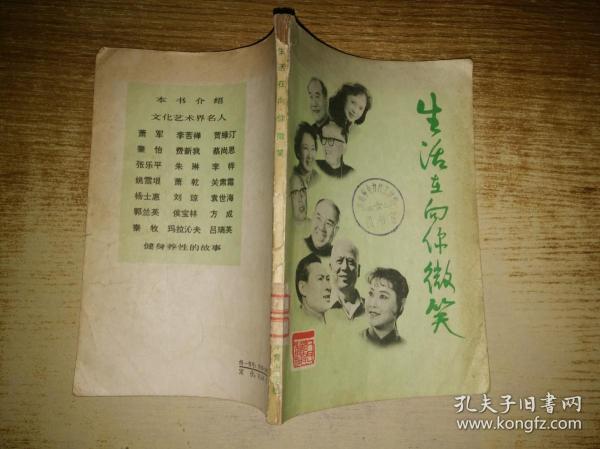 本书介绍
文化艺术界名人
萧军 李苦禅 贾绿汀
秦怡 费新我 蔡尚思
张乐平 朱琳 李梓
姚雪垠 萧乾 关肃霜
杨士惠 刘琼 袁世海
郭兰英 侯宝林 方成
秦牧 玛拉沁夫 吕瑞英
健身养性的故事
生活在向你微笑
生活在向你微笑
孔夫子旧书网
www.kongfz.com